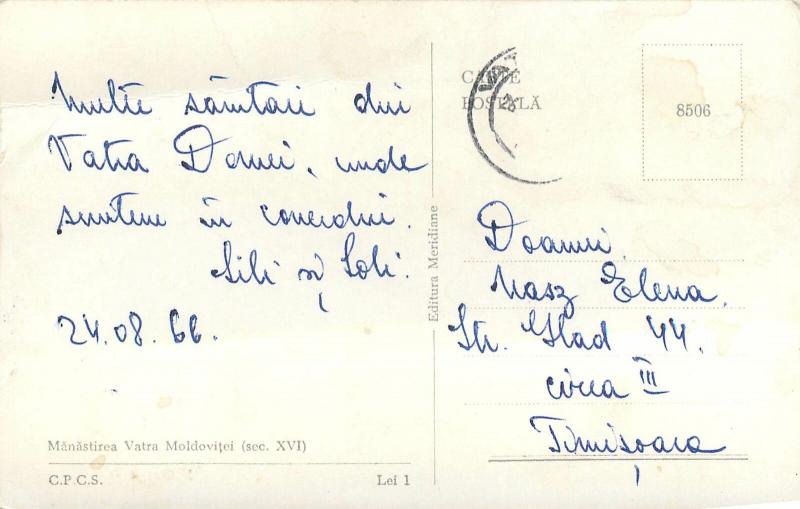 Multe sănătări din
Vatra Dornei, unde
suntem în concediu.
Sili și Soli.
24.08.66.
Mănăstirea Vatra Moldoviței (sec. XVI)
C.P.C.S. Lei 1
Editura Meridiane
CARTE
POȘTALĂ
8506
Doamnei
Nasz Elena.
Str. Glad 44.
circa III
Timișoara